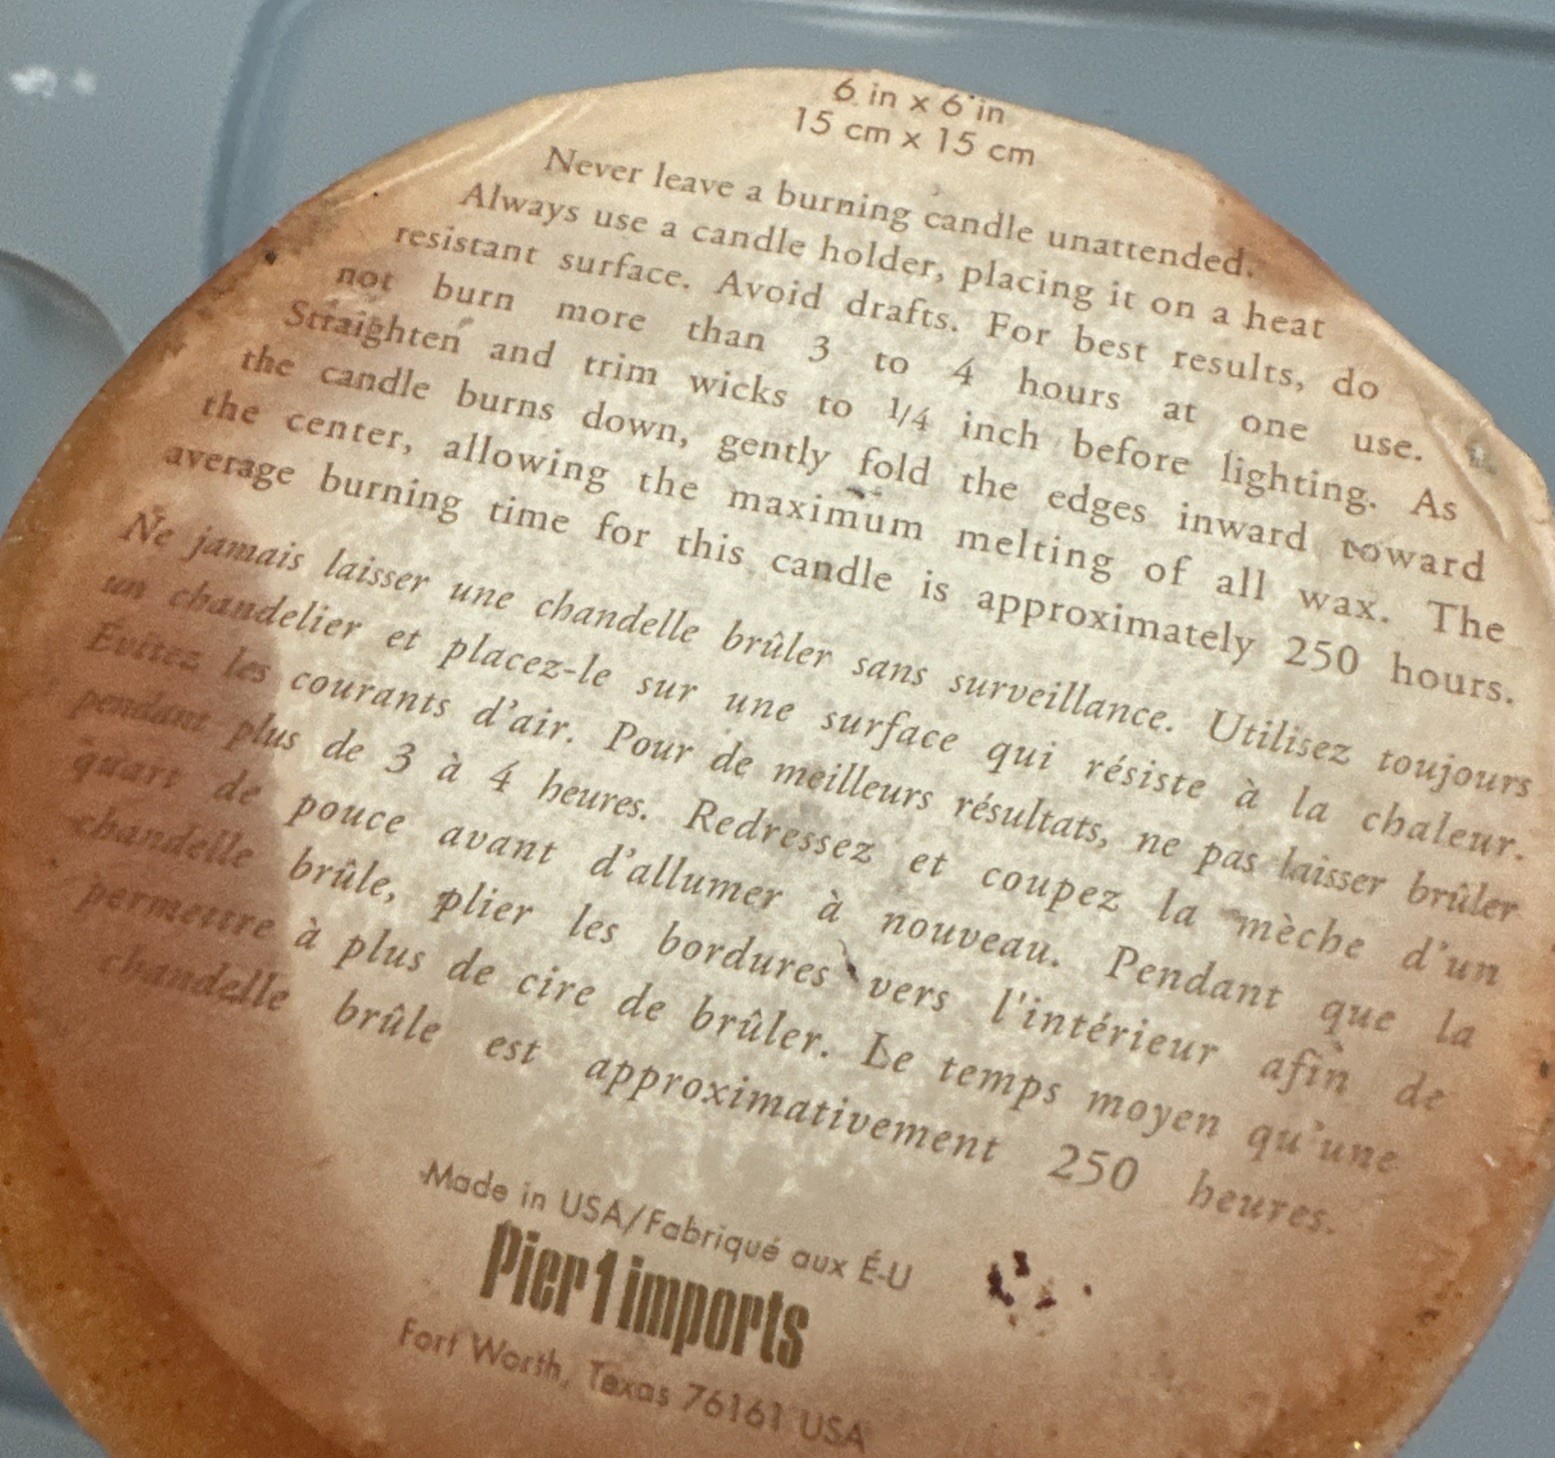 6 in x 6 in
15 cm x 15 cm
Never leave a burning candle unattended.
Always use a candle holder, placing it on a heat
resistant surface. Avoid drafts. For best results, do
not burn more than 3 to 4 hours at one use.
Straighten and trim wicks to 1/4 inch before lighting. As
the candle burns down, gently fold the edges inward toward
the center, allowing the maximum melting of all wax. The
average burning time for this candle is approximately 250 hours.
Ne jamais laisser une chandelle brûler sans surveillance. Utilisez toujours
un chandelier et placez-le sur une surface qui résiste à la chaleur.
Évitez les courants d'air. Pour de meilleurs résultats, ne pas laisser brûler
pendant plus de 3 à 4 heures. Redressez et coupez la mèche d'un
quart de pouce avant d'allumer à nouveau. Pendant que la
chandelle brûle, plier les bordures vers l'intérieur afin de
permettre à plus de cire de brûler. Le temps moyen qu'une
chandelle brûle est approximativement 250 heures.
Made in USA/Fabriqué aux É-U
Pier 1 imports
Fort Worth, Texas 76161 USA